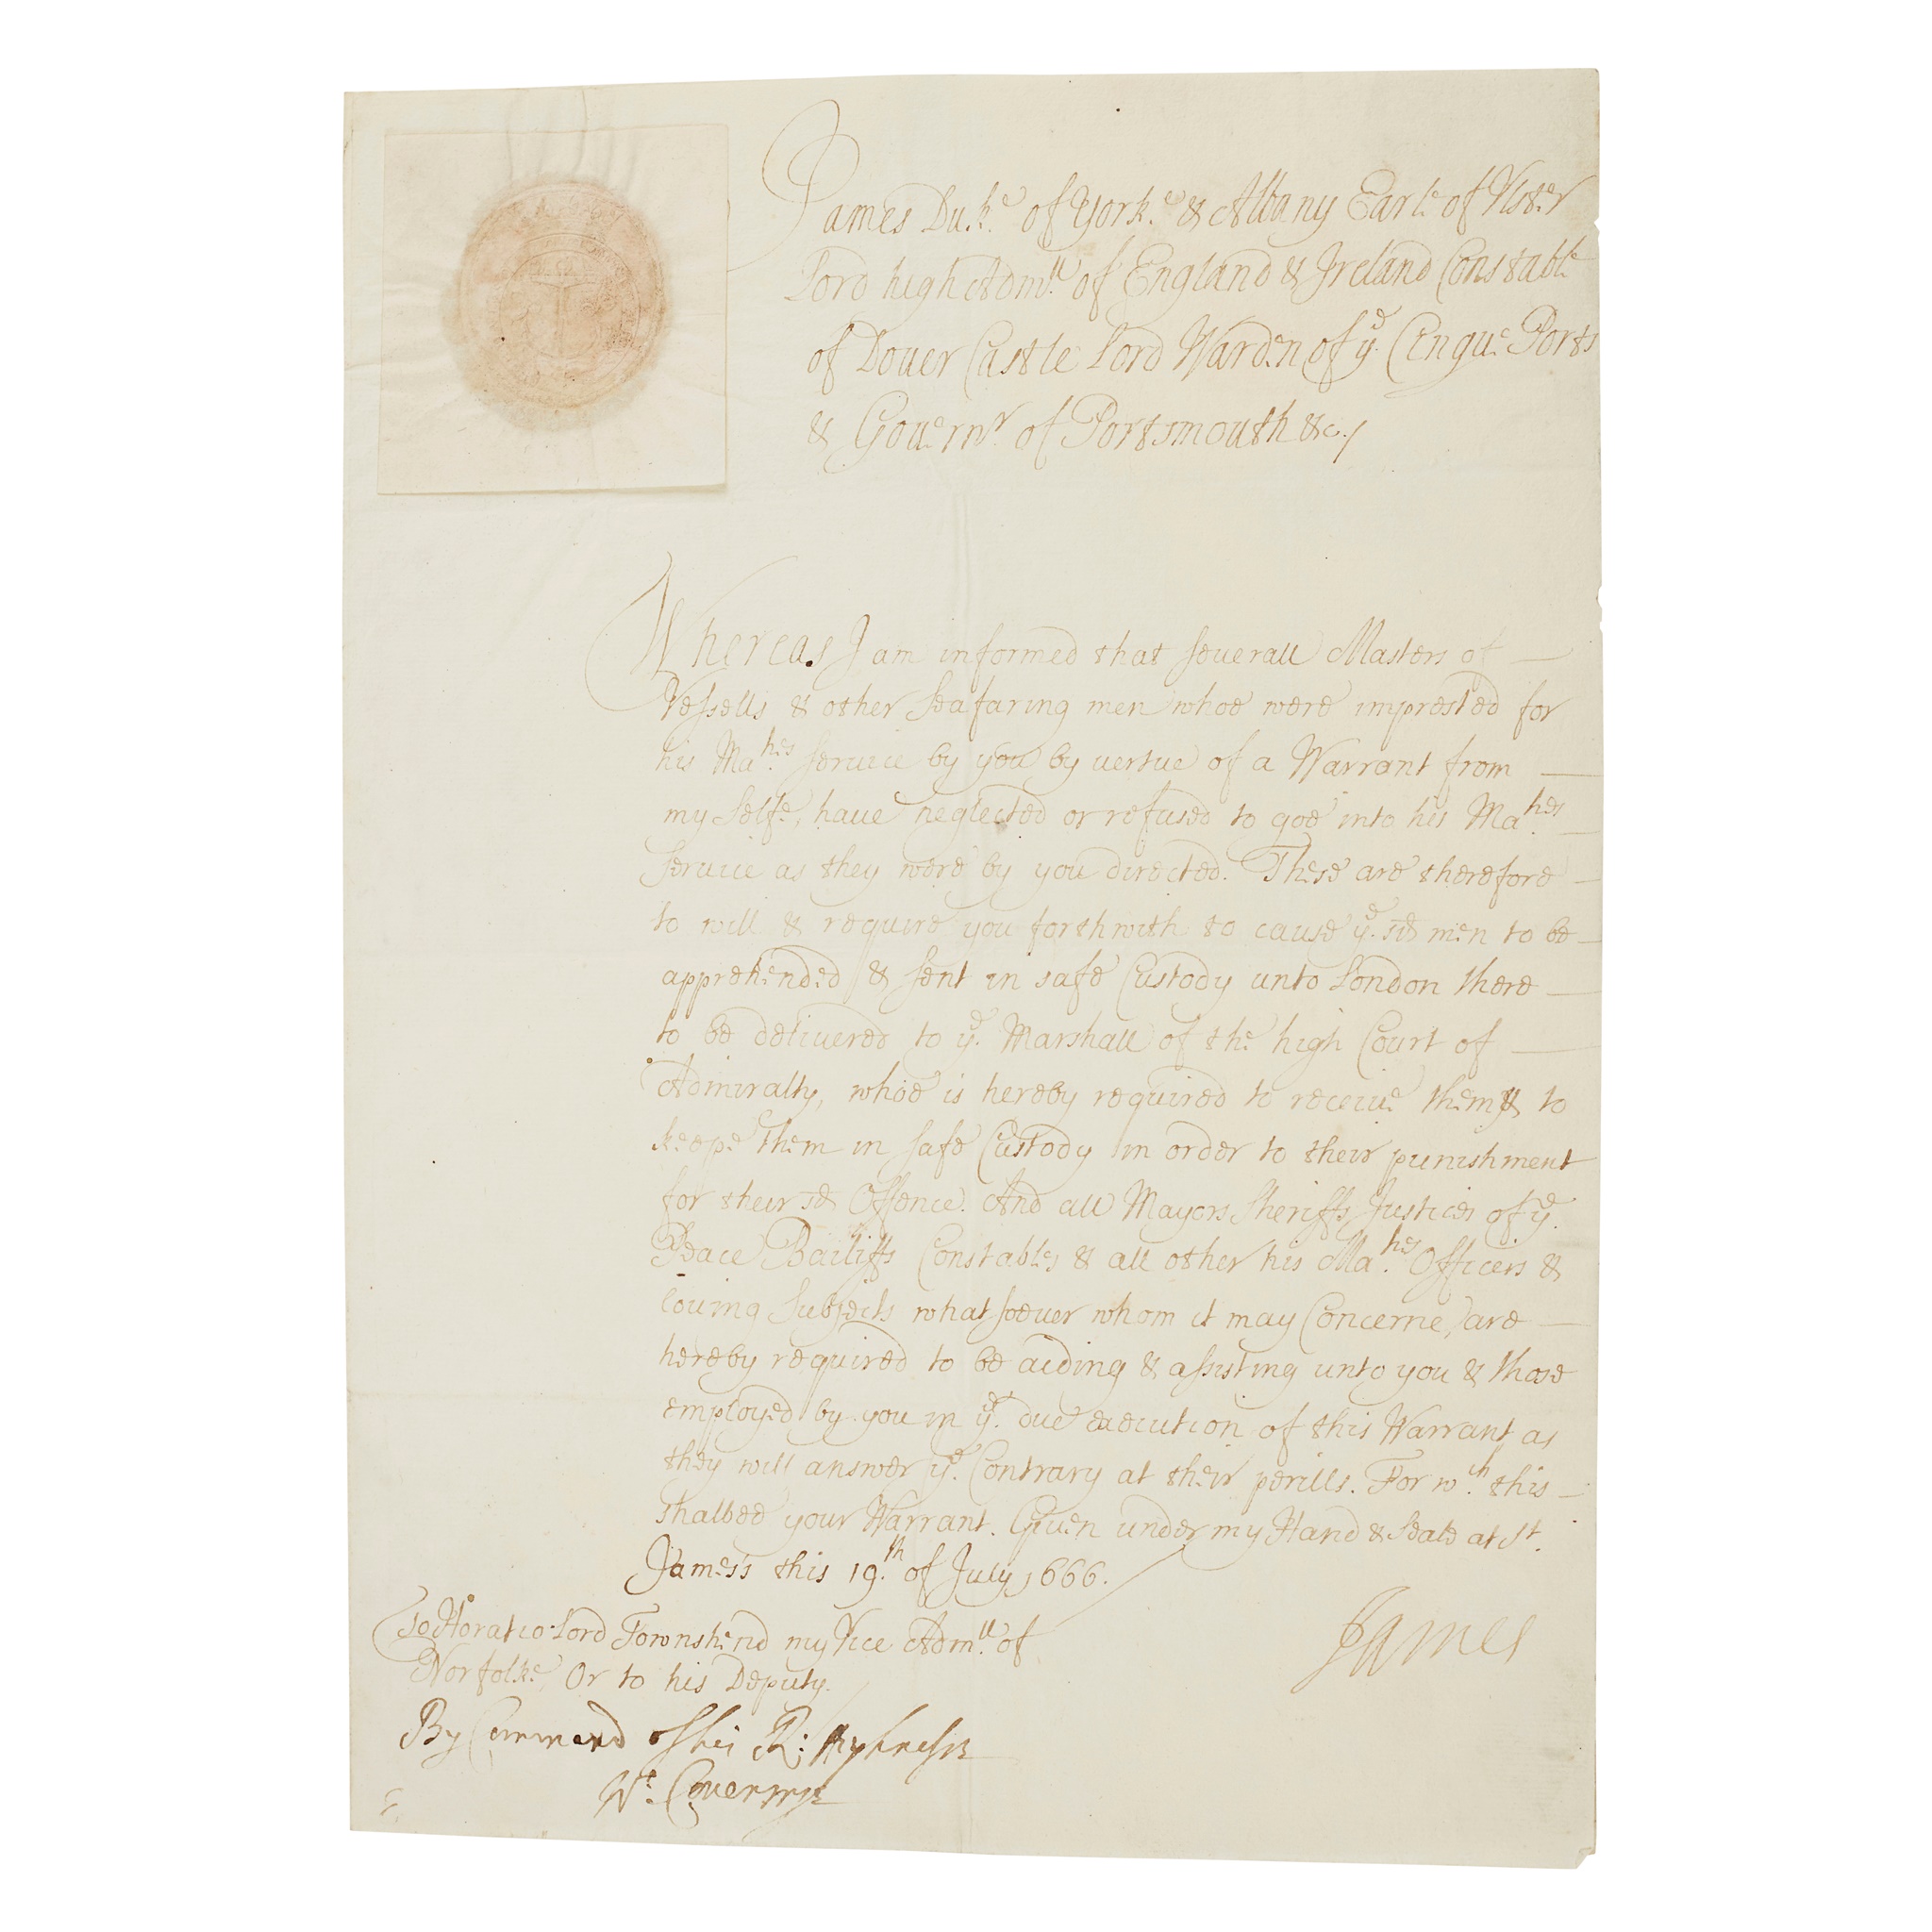 James Duke of Yorke & Albany Earle of Vlster
Lord high Admll. of England & Ireland Constable
of Douer Castle Lord Warden of ye. Cinque Ports
& Gouernr. of Portsmouth &c./
Whereas I am informed that seuerall Masters of
Vessells & other Seafaring men whoe were imprested for
his Mates. Seruice by you by vertue of a Warrant from
my Selfe, haue neglected or refused to goe into his Mates.
Seruice as they were by you directed. These are therefore
to will & require you forthwith to cause ye. sd men to be
apprehended & sent in safe Custody unto London there
to be deliuered to ye. Marshall of the high Court of
Admiralty, whoe is hereby required to receiue them & to
keepe them in safe Custody in order to their punishment
for their sd Offence. And all Mayors Sheriffs Justices of ye.
Peace Bailiffs Constables & all other his Mates. Officers &
louing Subjects whatsoeuer whom it may Concerne, are
hereby required to be aiding & assisting unto you & those
employed by you in ye. due execution of this Warrant as
they will answer ye. Contrary at their perills. For wch. this
shalbee your Warrant. Giuen under my Hand & Seale at St.
James's this 19th. of July 1666.
James
To Horatio Lord Townshend my Vice Admll. of
Norfolke, Or to his Deputy.
By Command of his R: Highnesse
Wm. Couentrye